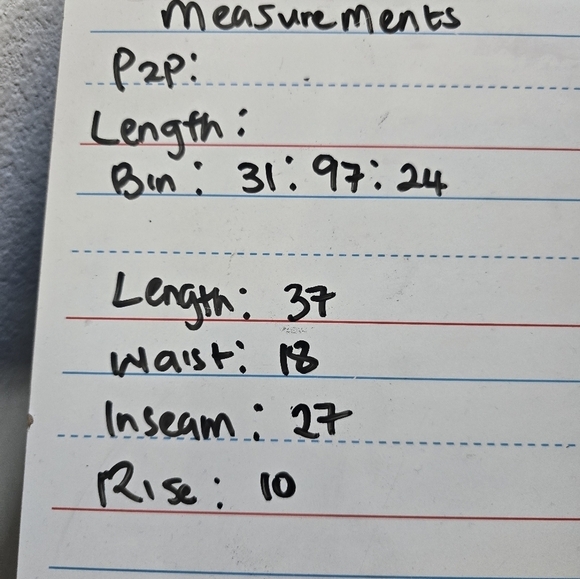 Measurements
P2P:
Length:
Bin: 31:97:24
Length: 37
Waist: 18
Inseam: 27
Rise: 10